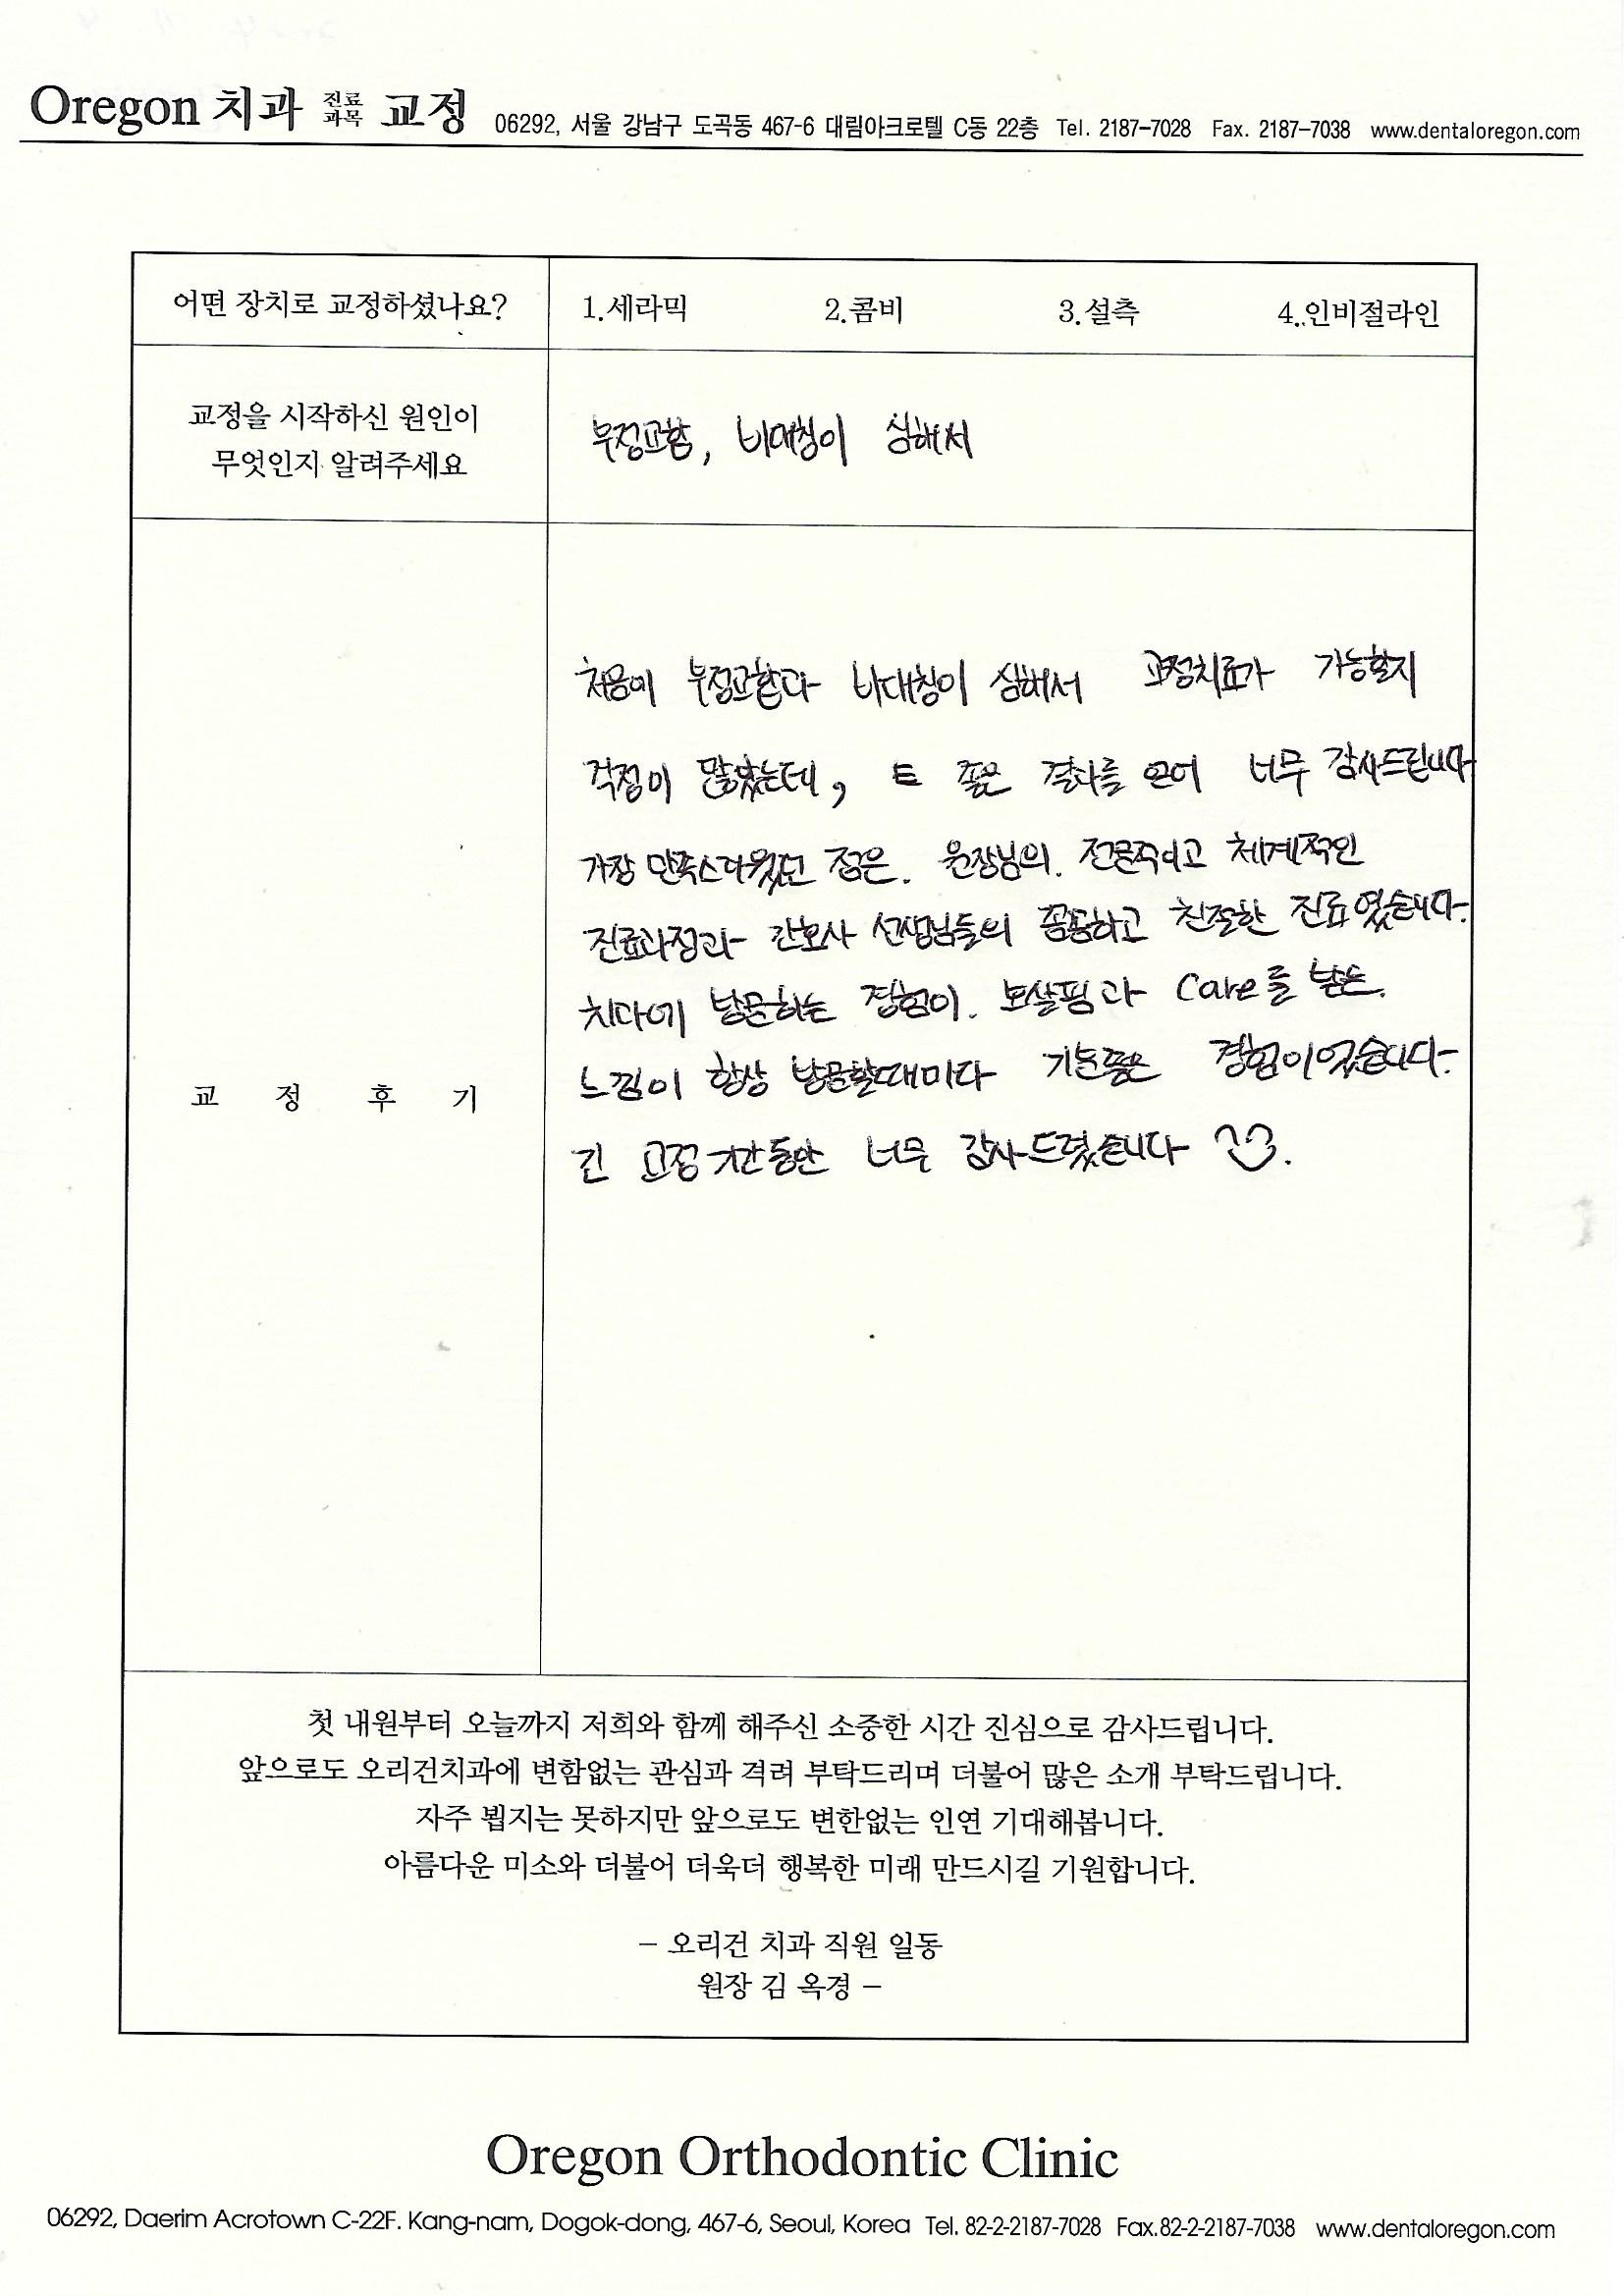 Oregon 치과 진료과목 교정 06292, 서울 강남구 도곡동 467-6 대림아크로텔 C동 22층 Tel. 2187-7028 Fax. 2187-7038 www.dentaloregon.com
어떤 장치로 교정하셨나요? 1.세라믹 2.콤비 3.설측 4.인비절라인
교정을 시작하신 원인이
무엇인지 알려주세요
부정교합, 비대칭이 심해서
교 정 후 기
처음에 부정교합과 비대칭이 심해서 교정치료가 가능할지
걱정이 많았는데, 좋은 결과를 얻어 너무 감사드립니다
가장 만족스다웠던 점은. 원장님의. 전문적이고 체계적인
진료과정과 간호사 선생님들의 꼼꼼하고 친절한 진료였습니다.
치과에 방문하는 경험이. 보살핌과 Care를 받는.
느낌이 항상 방문할때마다 기분좋은 경험이었습니다.
긴 교정기간동안 너무 감사드렸습니다
첫 내원부터 오늘까지 저희와 함께 해주신 소중한 시간 진심으로 감사드립니다.
앞으로도 오리건치과에 변함없는 관심과 격려 부탁드리며 더불어 많은 소개 부탁드립니다.
자주 뵙지는 못하지만 앞으로도 변한없는 인연 기대해봅니다.
아름다운 미소와 더불어 더욱더 행복한 미래 만드시길 기원합니다.
– 오리건 치과 직원 일동
원장 김 옥경 –
Oregon Orthodontic Clinic
06292, Daerim Acrotown C-22F. Kang-nam, Dogok-dong, 467-6, Seoul, Korea Tel. 82-2-2187-7028 Fax.82-2-2187-7038 www.dentaloregon.com